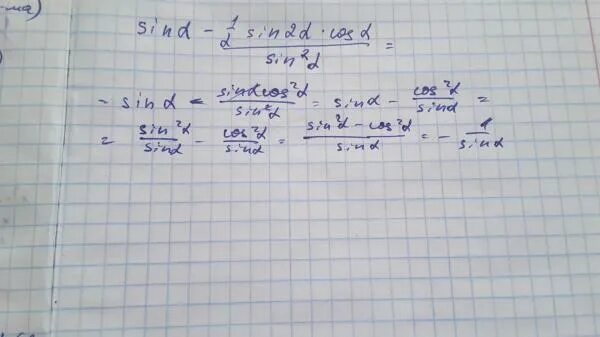 ма)
sin α − 1/2 sin 2α · cos α / sin²α =
= sin α − sin α cos²α / sin²α = sin α − cos²α / sin α =
= sin²α / sin α − cos²α / sin α = sin²α − cos²α / sin α = − 1 / sin α